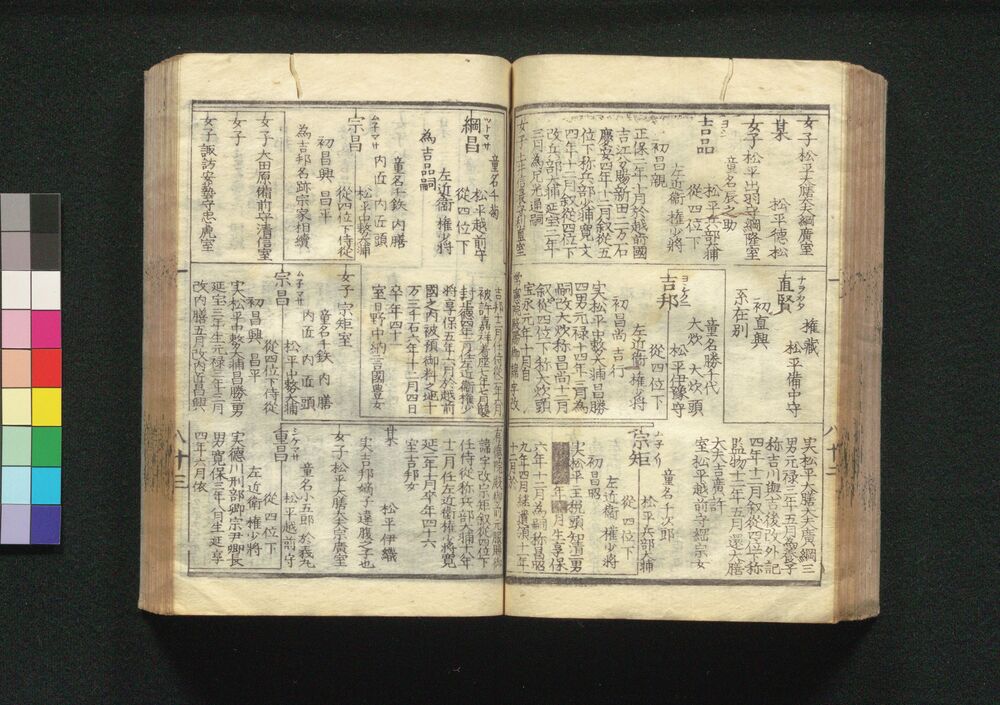 女子 松平大膳太夫綱廣室
某 松平徳松
女子 松平出羽守綱隆室
ヨシ
吉品
童名辰之助
松平兵部大輔
従四位下
左近衛権少将
初昌親
正保二年十月於越前國
吉江分賜新田二万石
慶安四年十二月叙従五
位下称兵部少輔寛文
四年十二月叙従四位下
改兵部大輔延宝二年
三月為兄光通嗣
ナヲカタ
直賢
権蔵
松平備中守
初直興
系在別
ヨシクニ
吉邦
童名勝千代
大炊 大炊頭
松平伊豫守
従四位下
左近衛権少将
初昌尚 吉行
実松平中務大輔昌勝
四男元禄十四年三月為
嗣改大炊称昌尚十二月
叙従四位下称大炊頭
宝永元年十月自
実松平大膳大夫廣綱三
男元禄三年十五月為養子
称吉川興吉後改外記
四年十二月叙従四位下称
監物十二年五月還大膳
大夫吉廣許
室松平越前守綱宗女
ムネノリ
宗矩
童名千次郎
松平兵部大輔
従四位下
左近衛権少将
初昌昭
実松平主税頭知清二男
月生享保
六年十二月為嗣称昌昭
九年四月継遺領十一年
十二月於
ツナマサ
綱昌
童名千菊
松平越前守
従四位下
左近衛権少将
為吉品嗣
ムネマサ
宗昌
童名千鉄 内膳
内匠 内匠頭
松平中務大輔
従四位下侍従
初昌興 昌平
為吉邦名跡宗家相續
女子 大田原備前守清信室
女子
女子 諏訪安藝守忠虎室
吉邦十二月任侍従二年六月
被許轟拝着座三年七月襲
封正徳四年二月任左近衛権少
将享保五年六月於越前
國之内被預御料之地十
万三千石六年十二月四日
卒年四十一
室日野中納言國豊女
女子 宗矩室
ムネマサ
宗昌
童名千鉄 内膳
内匠 内匠頭
松平中務大輔
従四位下侍従
初昌興 昌平
実松平中務大輔昌勝男
延宝三年生元禄三年三月
改内膳五月改内匠昌興
諱字改宗矩叙従四位下
任侍従称兵部大輔十八年
十二月任左近衛権少将寛
延二年十月卒年四十六
室吉邦女
某 松平伊織
実吉邦嫡子違腹之子也
女子 松平大膳大夫宗廣室
シケマサ
重昌
童名小五郎 於義丸
松平越前守
従四位下
左近衛権少将
実徳川刑部卿宗尹卿長
男寛保三年八月生延享
四年六月依
八十二
八十三